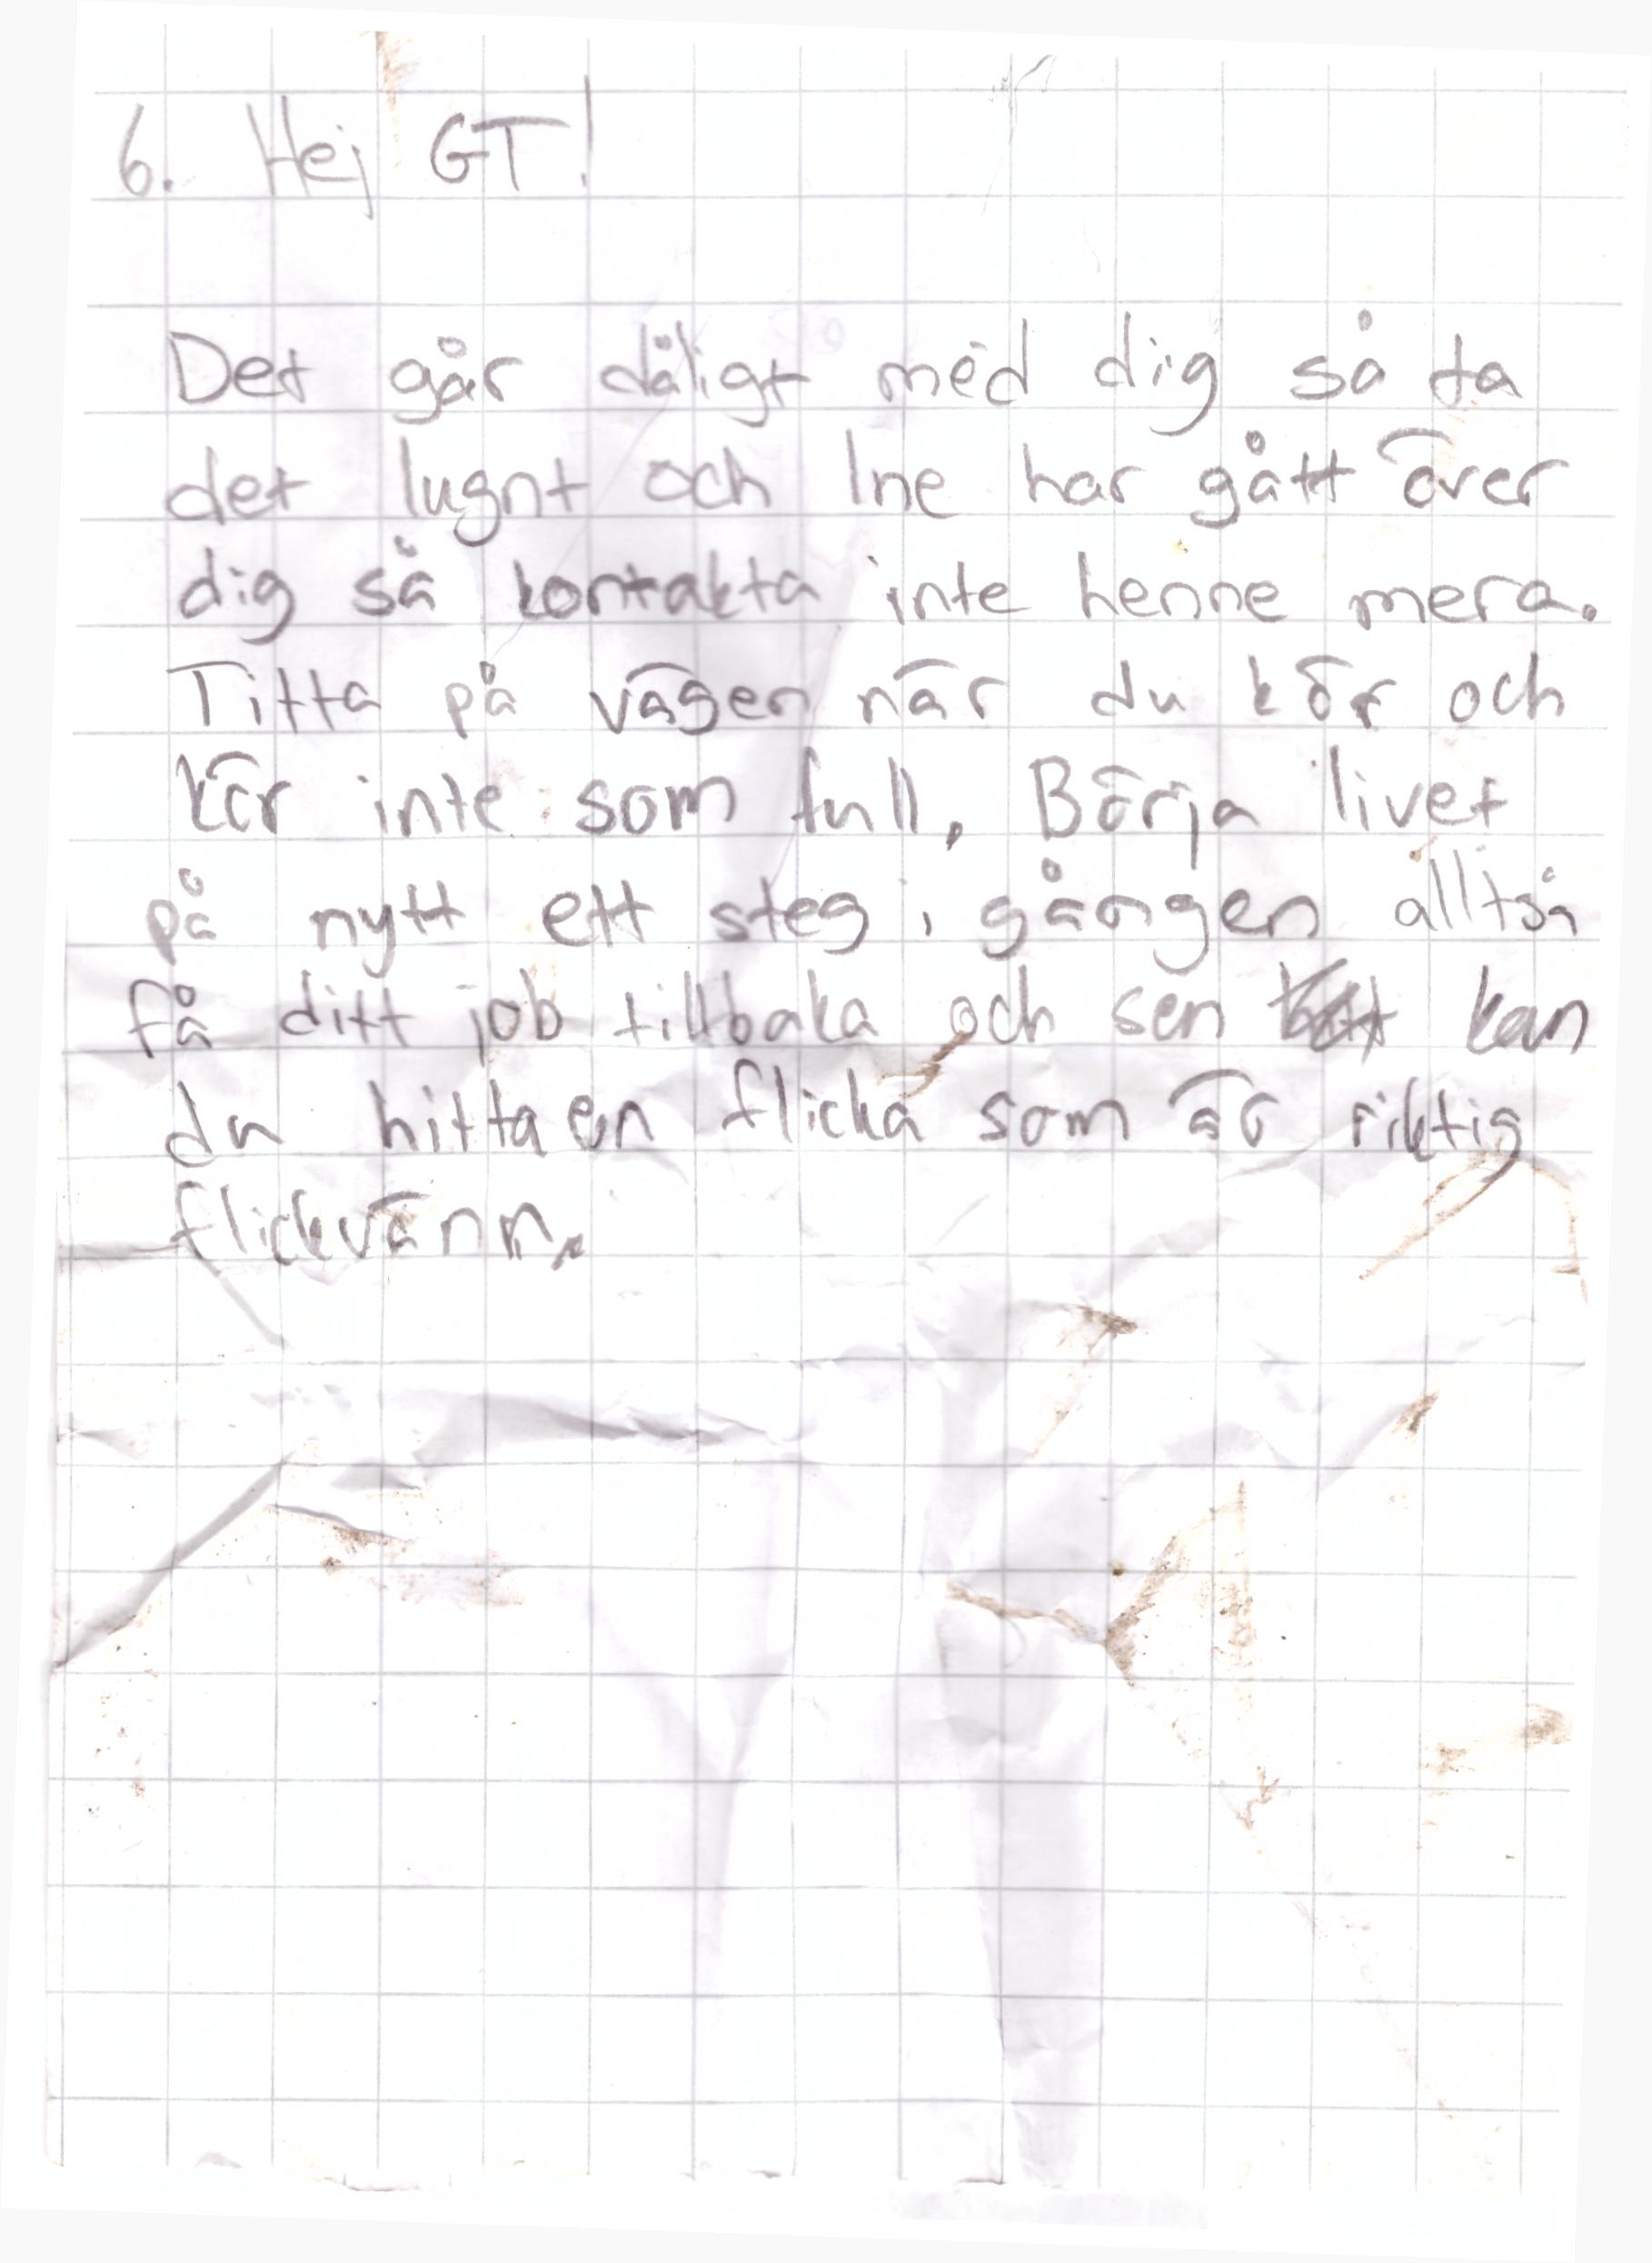 6. Hej GT!
Det går dåligt med dig så ta
det lugnt och Ine har gått över
dig så kontakta inte henne mera.
Titta på vägen när du kör och
kör inte som full. Börja livet
på nytt ett steg i gången alltså
få ditt job tillbaka och sen kan
du hitta en flicka som är riktig
flickvänn.